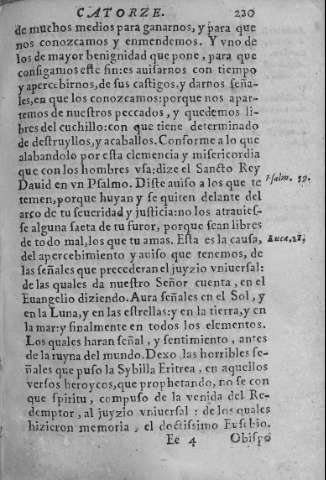 CATORZE. 220
de muchos medios para ganarnos, y para que
nos conozcamos y enmendemos. Y vno de
los de mayor benignidad que pone, para que
consigamos este fin: es auisarnos con tiempo
y apercebirnos, de sus castigos, y darnos seña-
les, en que los conozcamos: porque nos apar-
temos de nuestros peccados, y quedemos li-
bres del cuchillo: con que tiene determinado
de destruyllos, y acaballos. Conforme a lo que
alabandolo por esta clemencia y misericordia
que con los hombres vsa: dize el Sancto Rey
Dauid en vn Psalmo. Diste auiso a los que te
temen, porque huyan y se quiten delante del
arco de tu seueridad y justicia: no los atrauies-
se alguna saeta de tu furor, porque sean libres
de todo mal, los que tu amas. Esta es la causa,
del apercebimiento y auiso que tenemos, de
las señales que precederan el juyzio vniuersal:
de las quales da nuestro Señor cuenta, en el
Euangelio diziendo. Aura señales en el Sol, y
en la Luna, y en las estrellas: y en la tierra, y en
la mar: y finalmente en todos los elementos.
Los quales haran señal, y sentimiento, antes
de la ruyna del mundo. Dexo las horribles se-
ñales que puso la Sybilla Eritrea, en aquellos
versos heroycos, que prophetando, no se con
que spiritu, compuso de la venida del Re-
demptor, al juyzio vniuersal: de los quales
hizieron memoria, el doctissimo Eusebio,
Ee 4 Obispo
Psalm. 59.
Luca, 21,